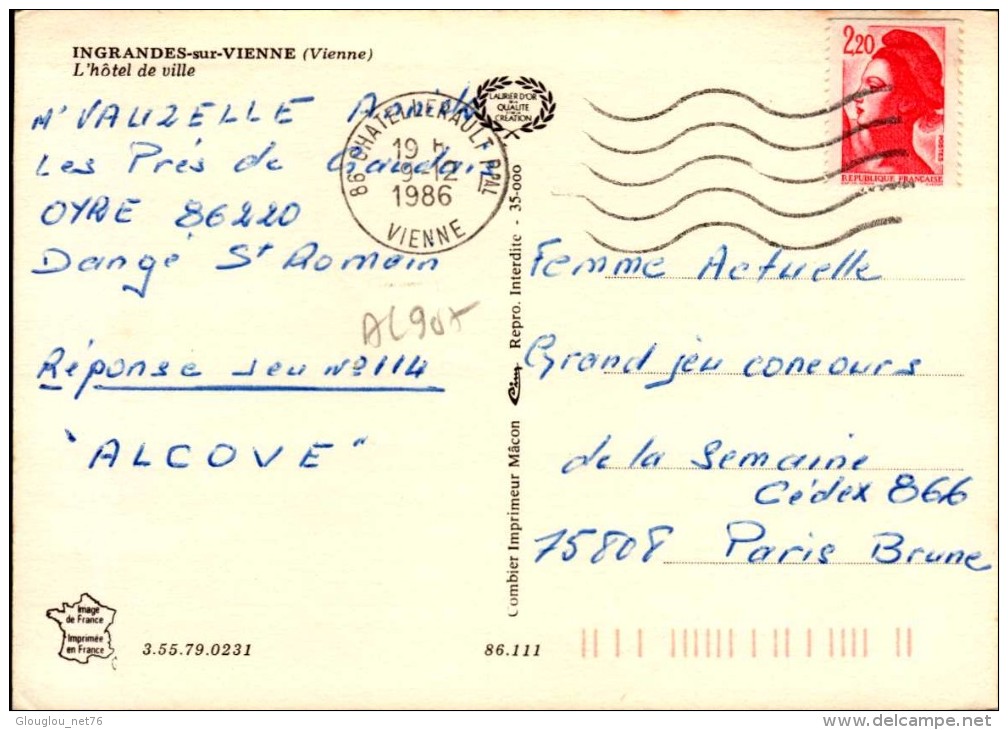 INGRANDES-sur-VIENNE (Vienne)
L'hôtel de ville
Mr VAUZELLE
Les Prés de
OYRE 86220
Dangé St Romain
Réponse Jeu No 114
"ALCOVE"
86 CHATELLERAULT RPAL
19 H
9-12
1986
VIENNE
LAURIER D'OR
DE LA
QUALITE
CREATION
2,20
POSTES
REPUBLIQUE FRANÇAISE
Femme Actuelle
Grand jeu concours
de la Semaine
Cédex 866
75808 Paris Brune
Combier Imprimeur Mâcon Cim Repro. Interdite - 35-000
Image
de France
Imprimée
en France
3.55.79.0231
86.111
Glouglou_net76
www.delcampe.net